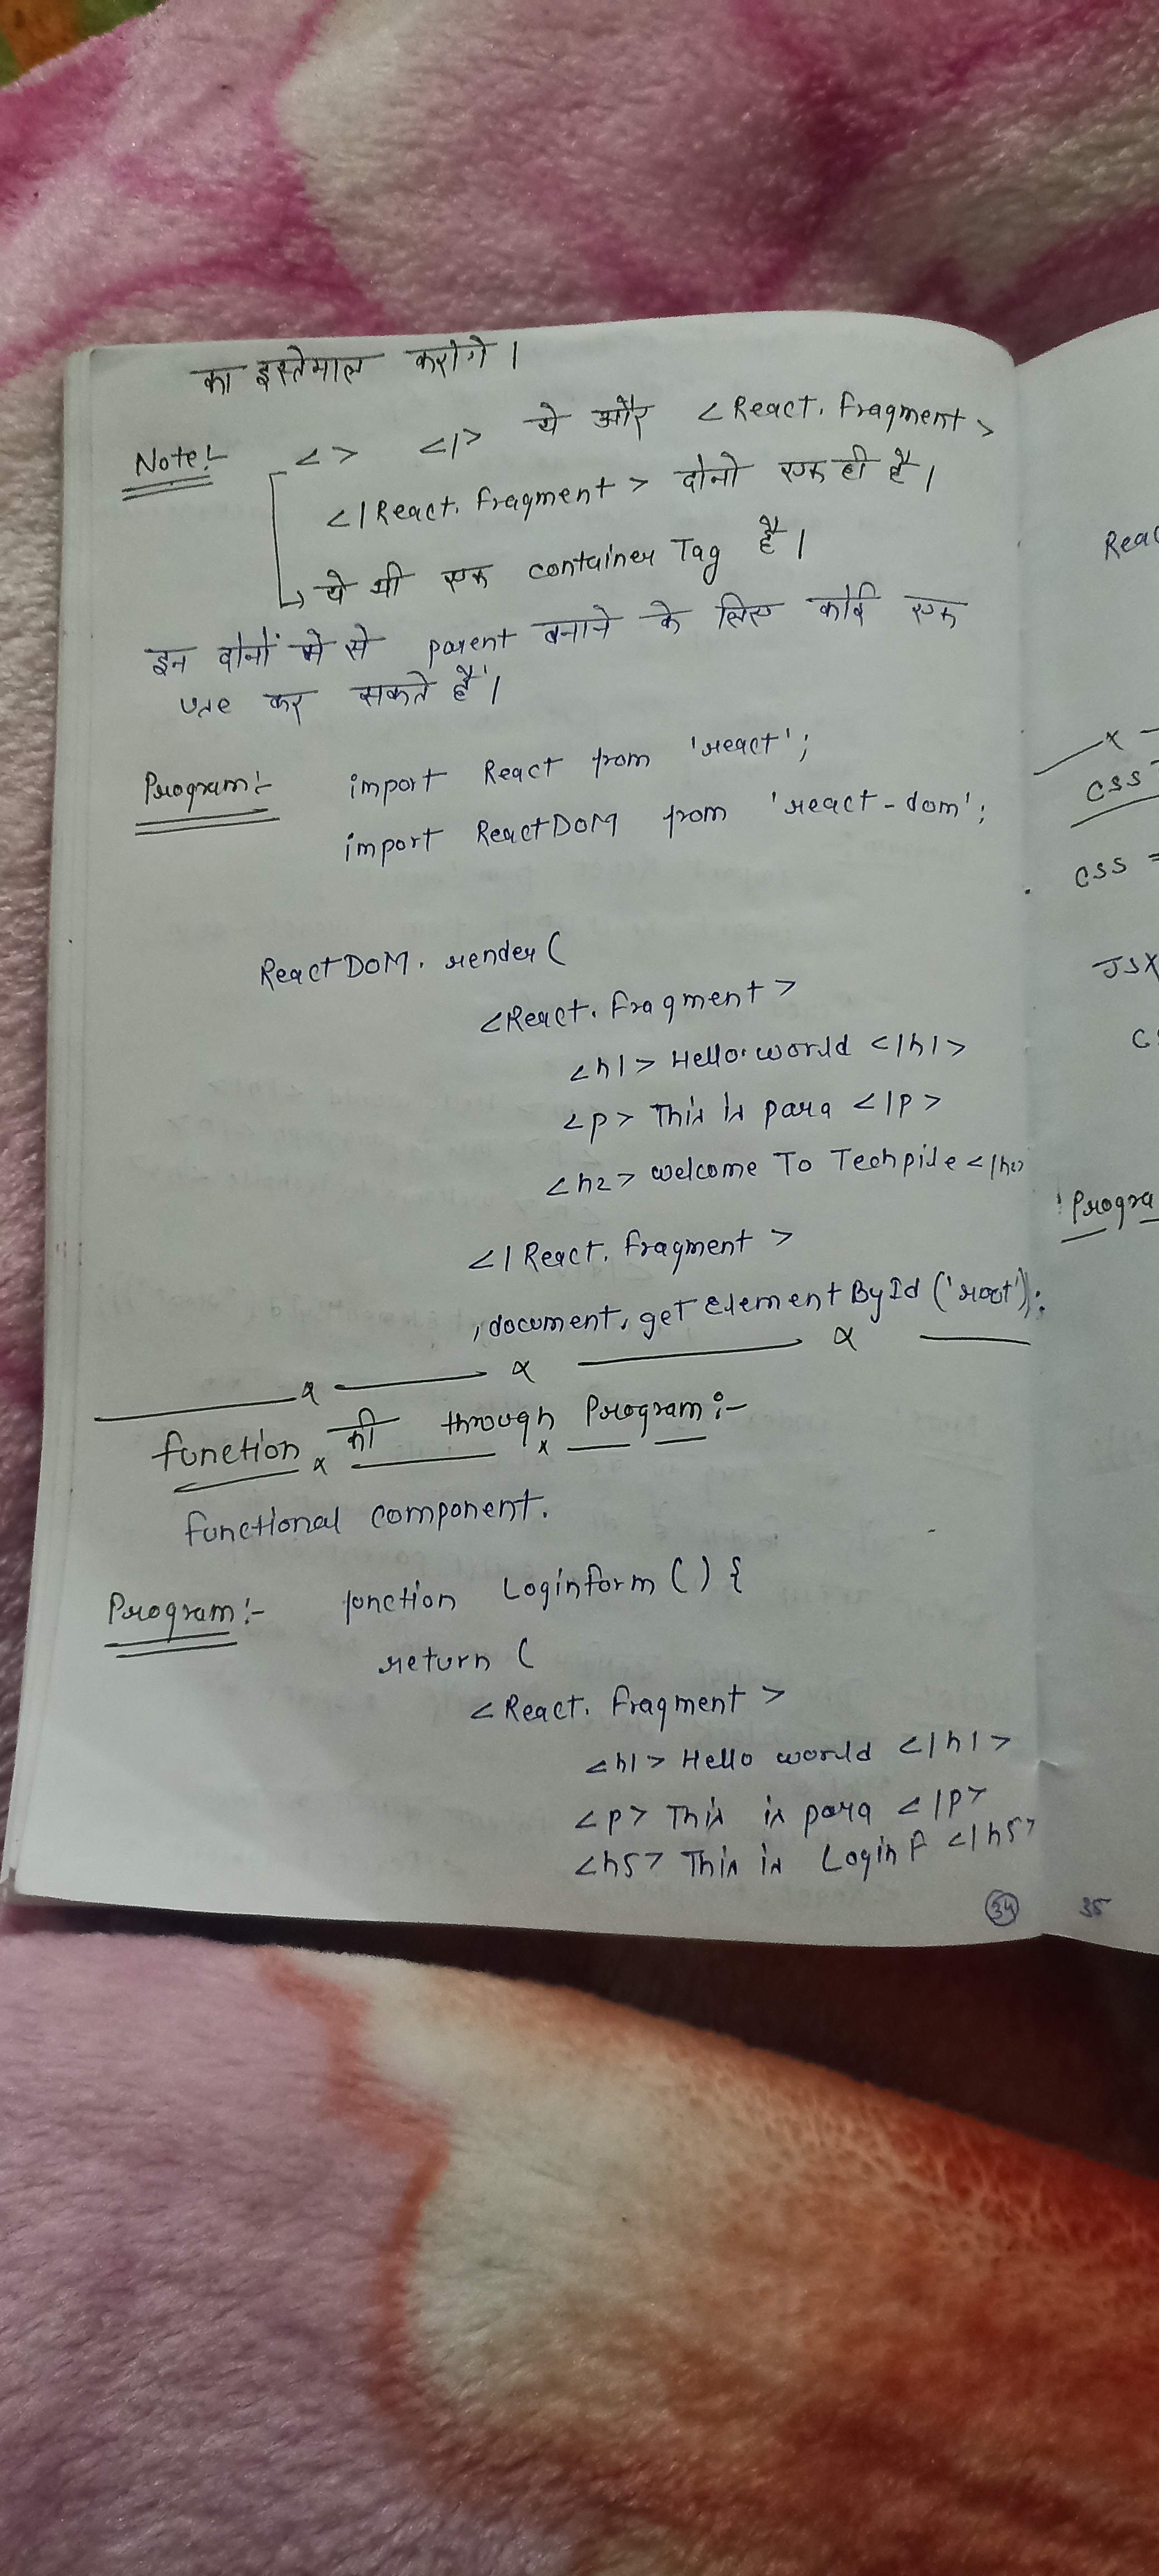 का इस्तेमाल करोगे ।
Note:- < > </> ये और <React. Fragment>
</React. Fragment> दोनो एक ही है ।
ये भी एक container Tag है ।
इन दोनों मे से parent बनाने के लिए कोई एक
use कर सकते हैं ।
Program:- import React from 'react';
import ReactDOM from 'react-dom';
ReactDOM. render (
<React. Fragment>
<h1> Hello world </h1>
<p> This is para </p>
<h2> welcome To Techpile </h2>
</React. Fragment>
, document. getElementById ('root');
function की through Program:-
functional component.
Program:- function Loginform () {
return (
<React. Fragment>
<h1> Hello world </h1>
<p> This is para </p>
<h5> This is Login F </h5>
34
35
Reac
CSS
CSS =
JSX
Progra